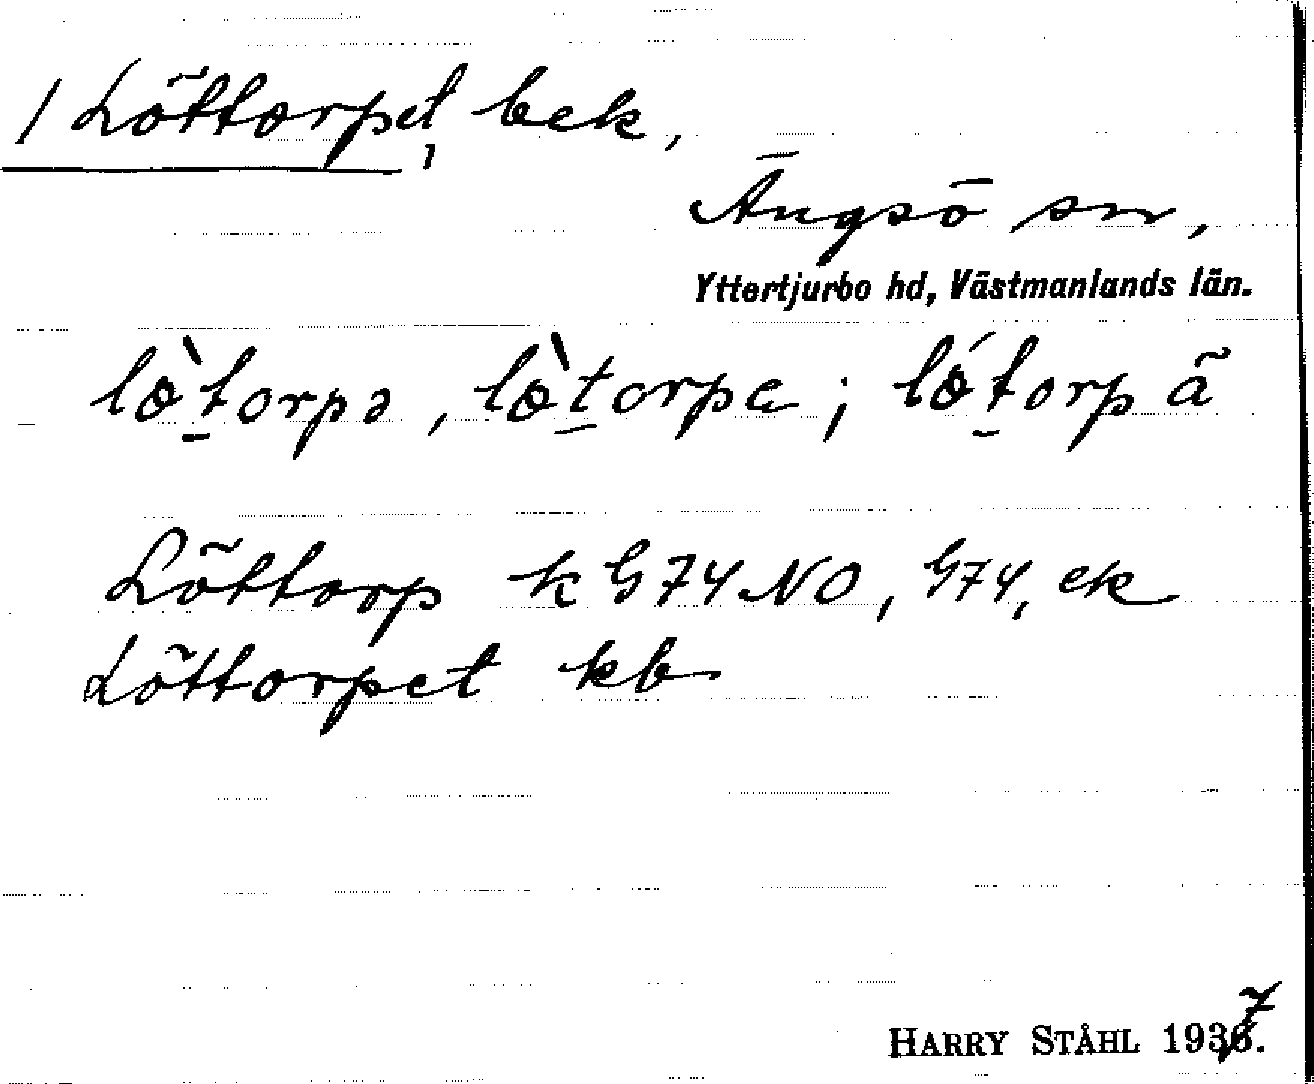 1 Löttorpet, bek,
Ängsö sn,
Yttertjurbo hd, Västmanlands län.
lò̱torpə, lò̱torpe; ló̱torp ä
Löttorp k G74 NO, G74, ek
Löttorpet kb
HARRY STÅHL 1937.